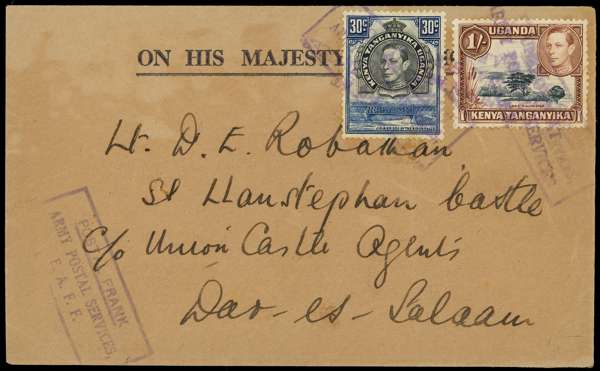 ON HIS MAJESTY
30c 30c
KENYA TANGANYIKA UGANDA
1/-
UGANDA
KENYA TANGANYIKA
Lt. D. E. Robathan
SS Llanstephan Castle
c/o Union Castle Agents
Dar-es-Salaam
POST FRANK
ARMY POSTAL SERVICES,
E. A. F. F.